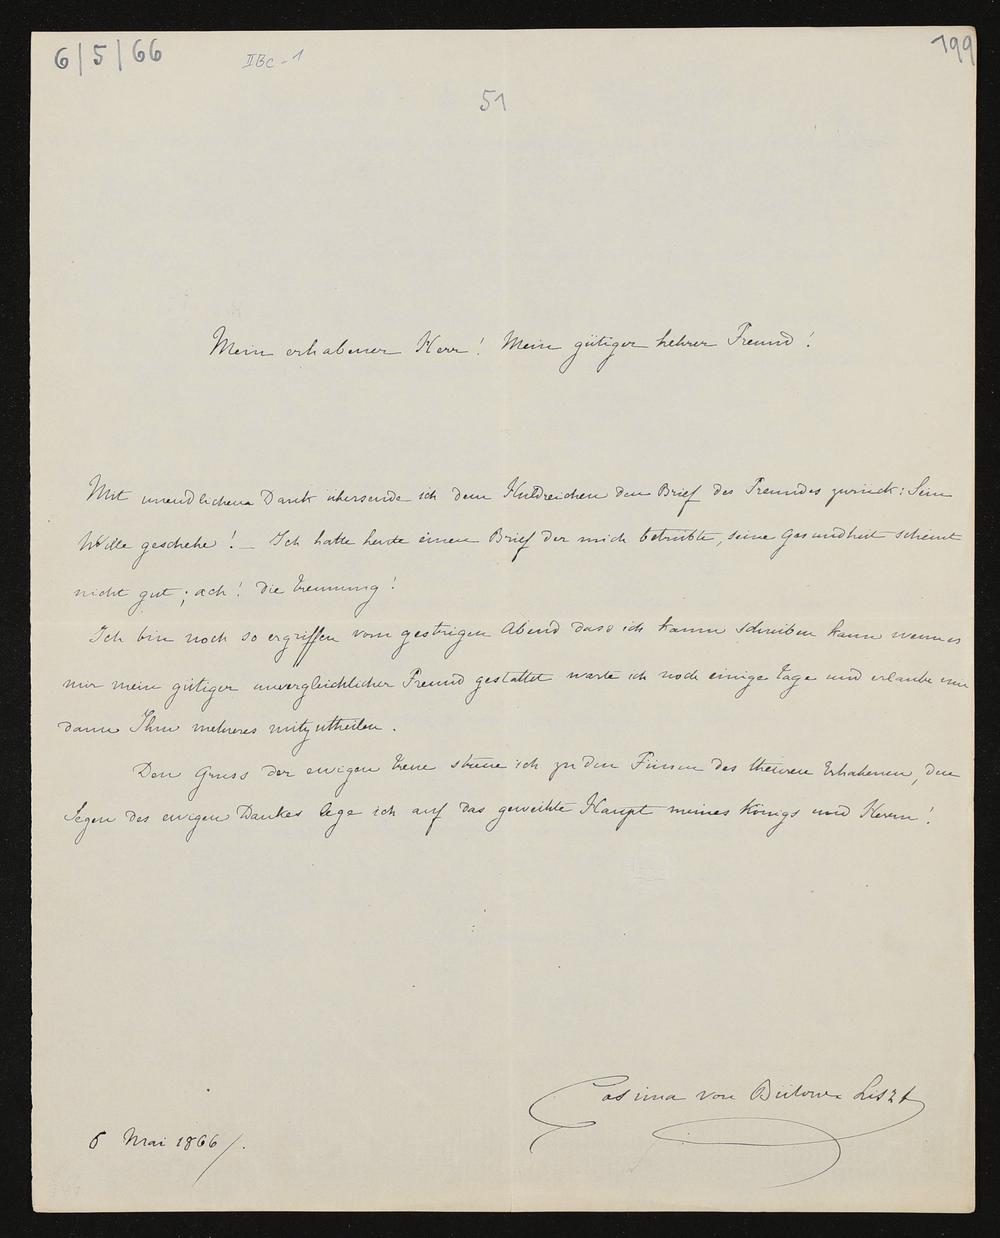 6/5/66
IIBc-1
199
51
Mein erhabener Herr! Mein gütiger hehrer Freund!
Mit unendlichem Dank übersende ich dem Huldreichen den Brief des Freundes zurück: Sein
Wille geschehe! – Ich hatte heute einen Brief der mich betrübte, seine Gesundheit scheint
nicht gut; ach! die Trennung!
Ich bin noch so ergriffen vom gestrigen Abend dass ich kaum schreiben kann wenn es
mir mein gütiger unvergleichlicher Freund gestattet warte ich noch einige Tage und erlaube mir
dann Ihm mehreres mitzutheilen.
Den Gruss der ewigen Treue streue ich zu den Füssen des theuren Erhabenen, den
Segen des ewigen Dankes lege ich auf das geweihte Haupt meines Königs und Herrn!
Cosima von Bülow-Liszt
6 Mai 1866/.